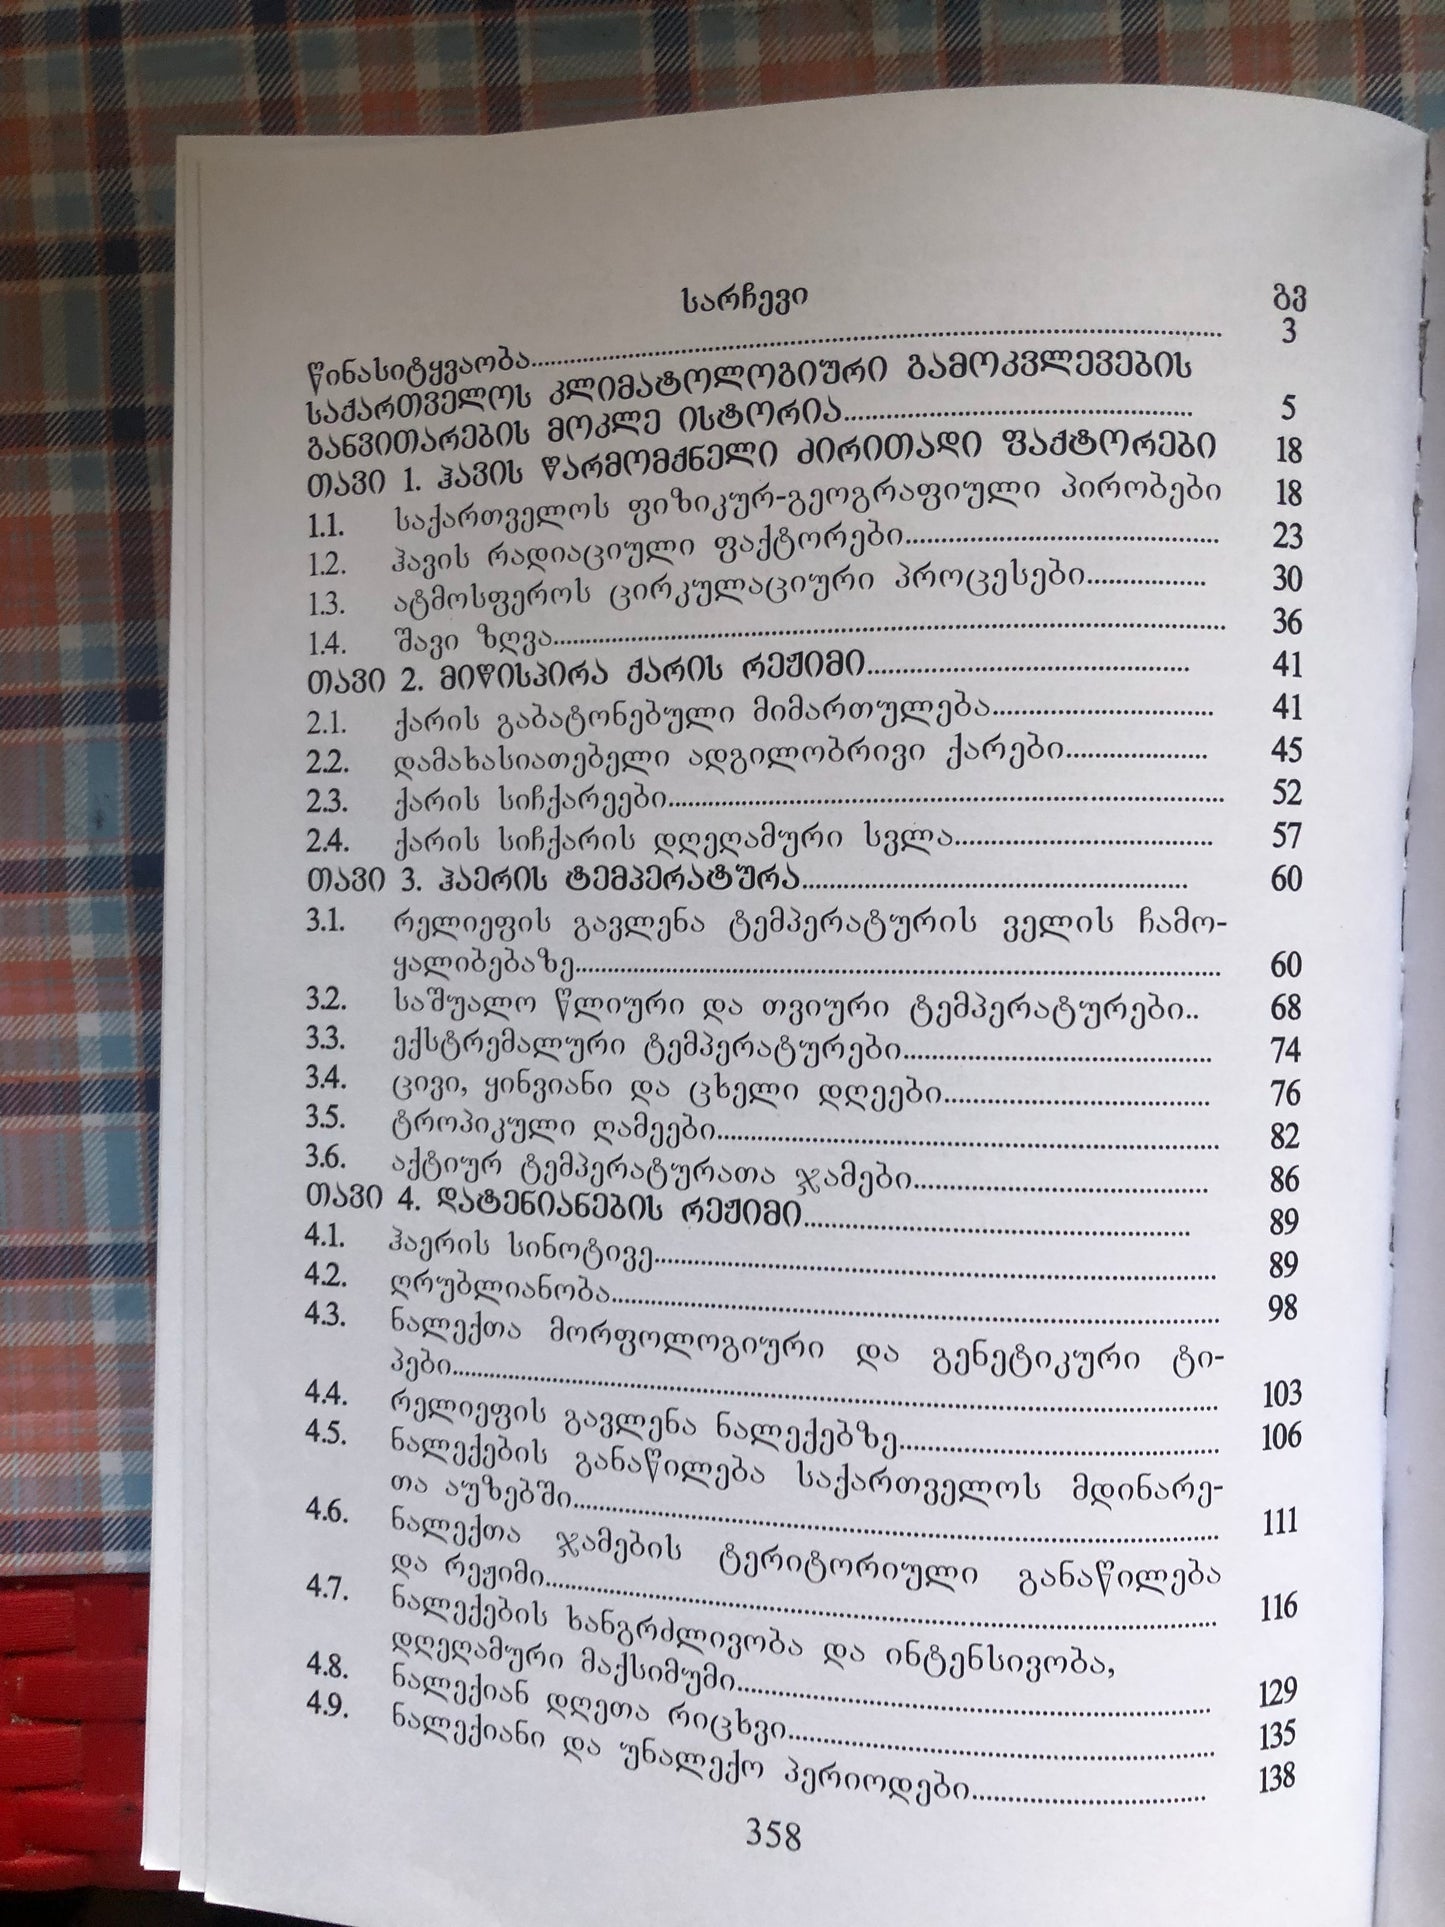 სარჩევი გვ
წინასიტყვაობა................ 3
საქართველოს კლიმატოლოგიური გამოკვლევების
განვითარების მოკლე ისტორია................ 5
თავი 1. ჰავის წარმომქნელი ძირითადი ფაქტორები 18
1.1. საქართველოს ფიზიკურ-გეოგრაფიული პირობები 18
1.2. ჰავის რადიაციული ფაქტორები................ 23
1.3. ატმოსფეროს ცირკულაციური პროცესები................ 30
1.4. შავი ზღვა................ 36
თავი 2. მიწისპირა ქარის რეჟიმი................ 41
2.1. ქარის გაბატონებული მიმართულება................ 41
2.2. დამახასიათებელი ადგილობრივი ქარები................ 45
2.3. ქარის სიჩქარეები................ 52
2.4. ქარის სიჩქარის დღეღამური სვლა................ 57
თავი 3. ჰაერის ტემპერატურა................ 60
3.1. რელიეფის გავლენა ტემპერატურის ველის ჩამო-
ყალიბებაზე................ 60
3.2. საშუალო წლიური და თვიური ტემპერატურები.. 68
3.3. ექსტრემალური ტემპერატურები................ 74
3.4. ცივი, ყინვიანი და ცხელი დღეები................ 76
3.5. ტროპიკული ღამეები................ 82
3.6. აქტიურ ტემპერატურათა ჯამები................ 86
თავი 4. დატენიანების რეჟიმი................ 89
4.1. ჰაერის სინოტივე................ 89
4.2. ღრუბლიანობა................ 98
4.3. ნალექთა მორფოლოგიური და გენეტიკური ტი-
პები................ 103
4.4. რელიეფის გავლენა ნალექებზე................ 106
4.5. ნალექების განაწილება საქართველოს მდინარე-
თა აუზებში................ 111
4.6. ნალექთა ჯამების ტერიტორიული განაწილება
და რეჟიმი................ 116
4.7. ნალექების ხანგრძლივობა და ინტენსივობა,
დღეღამური მაქსიმუმი................ 129
4.8. ნალექიან დღეთა რიცხვი................ 135
4.9. ნალექიანი და უნალექო პერიოდები................ 138
358